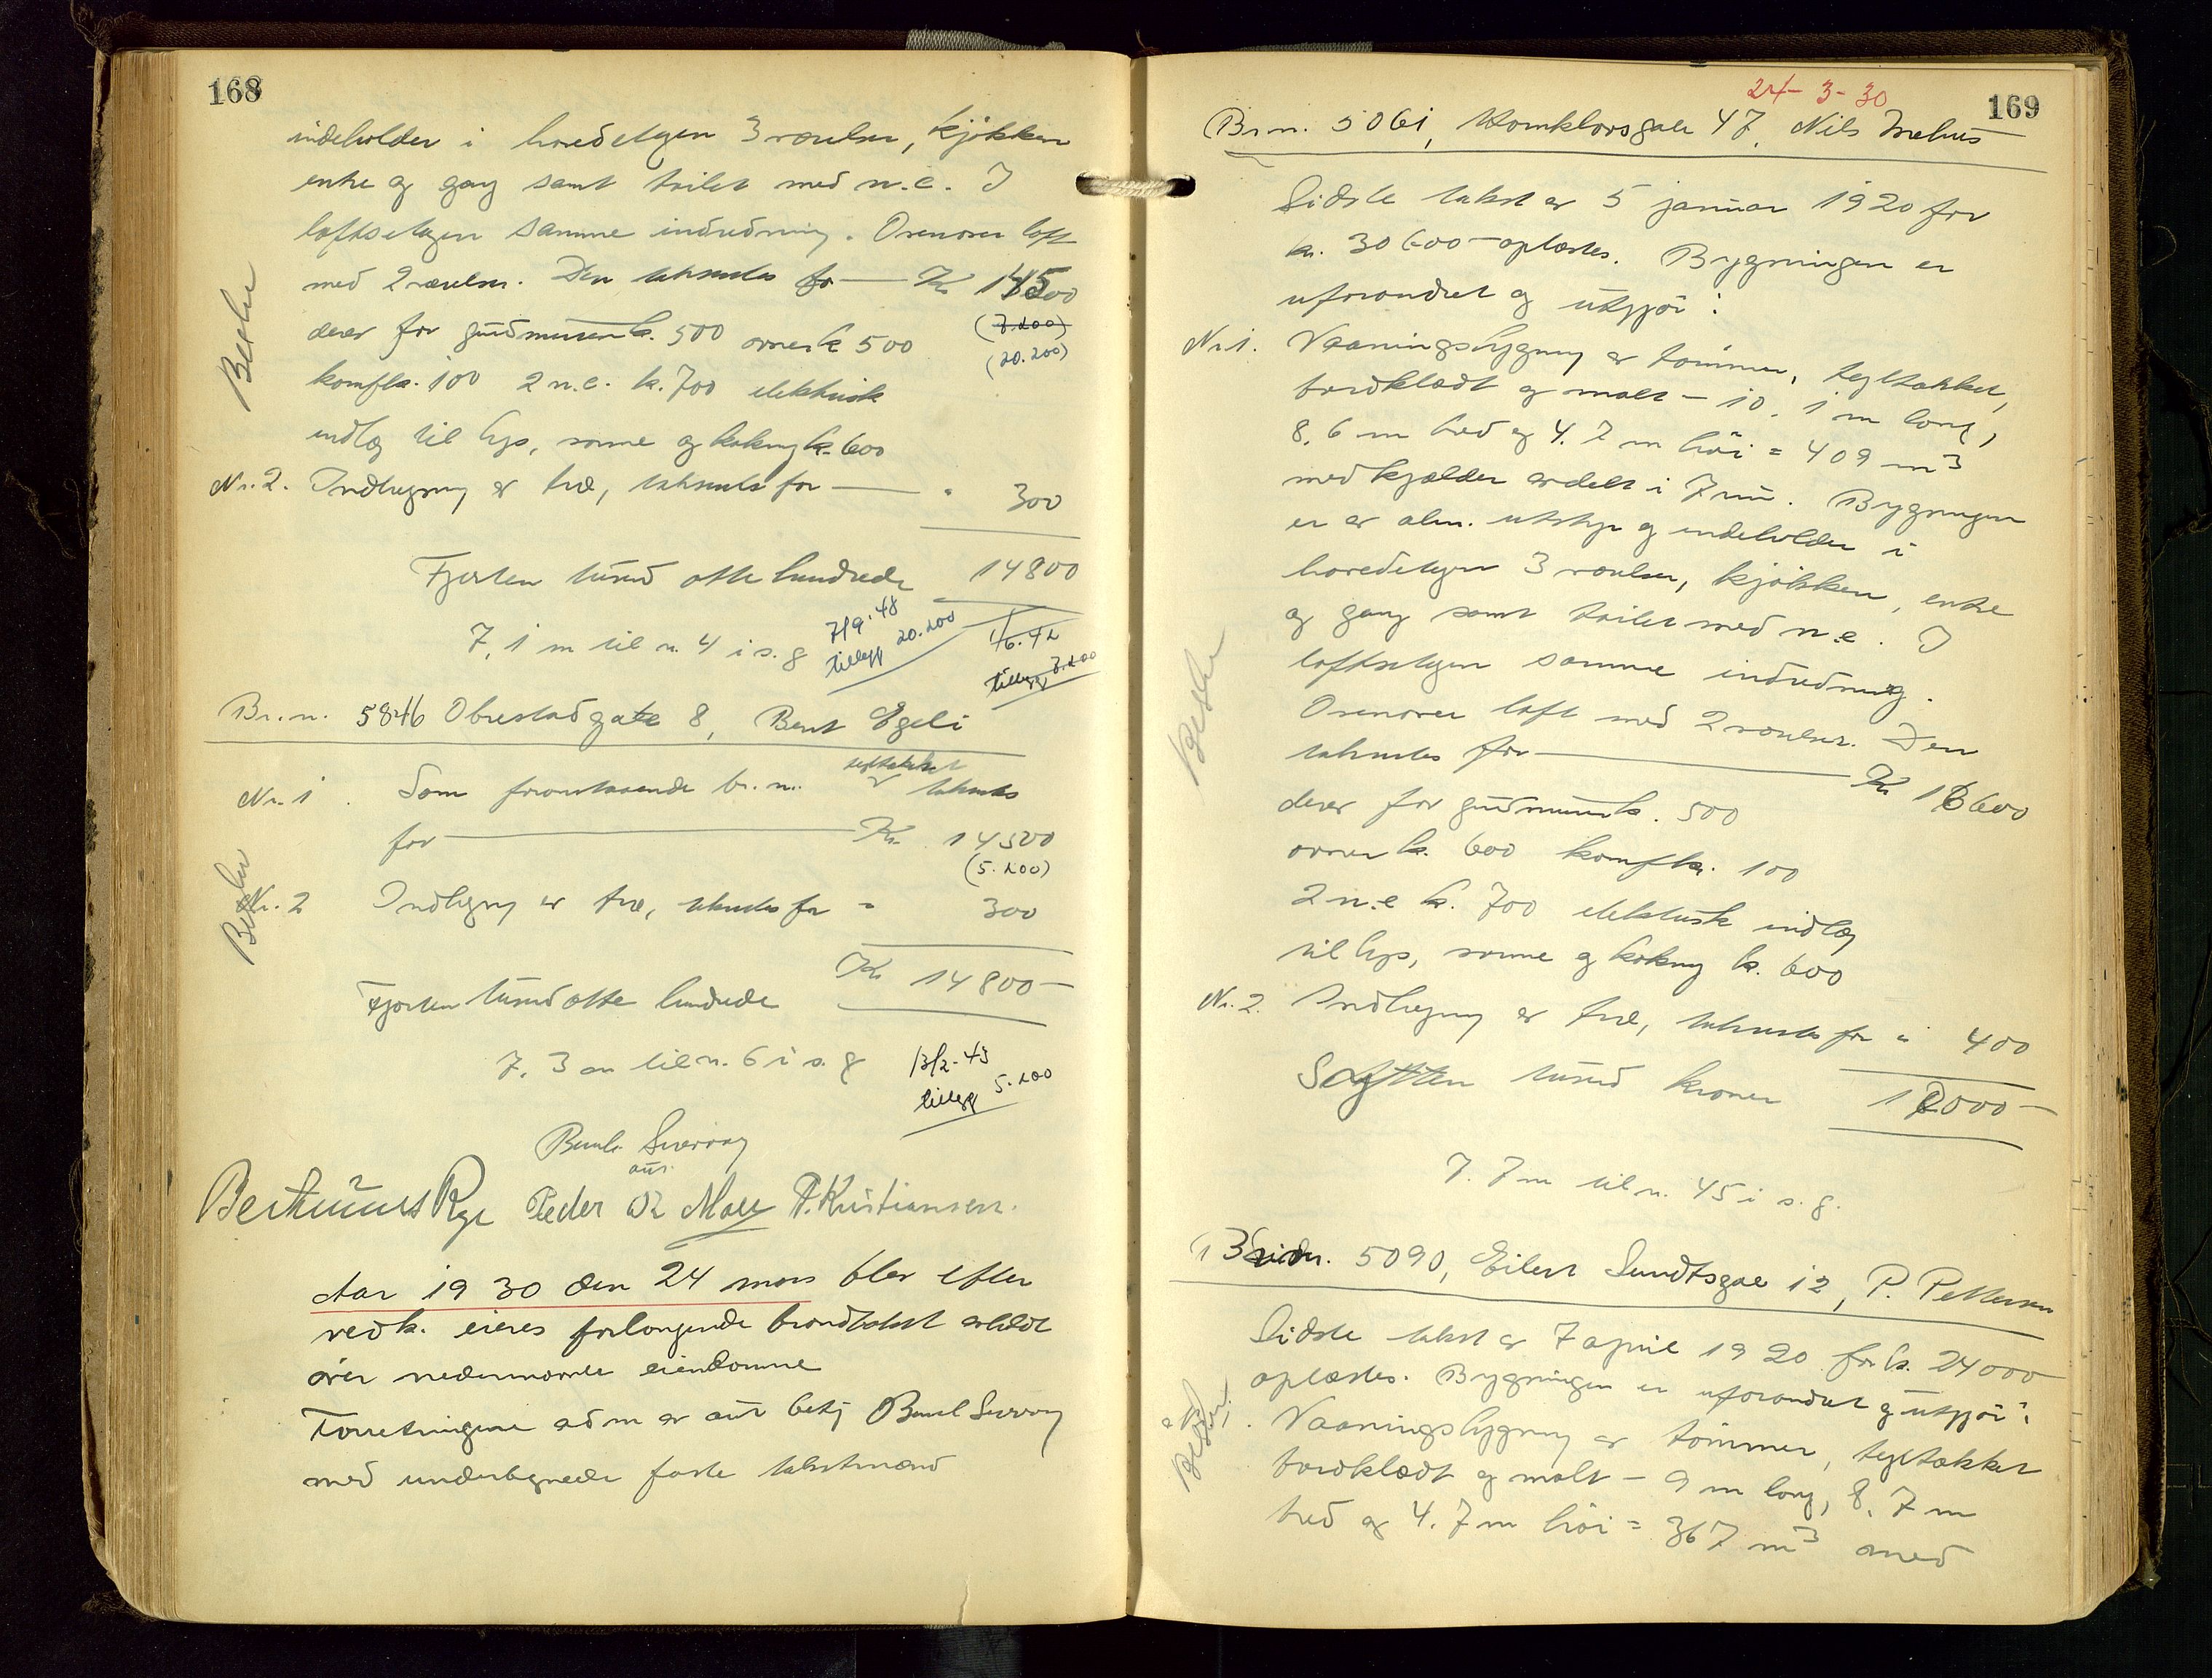 168
indeholder i hovedetagen 3 værelser, kjøkken
entre og gang samt toilet med w.c. I
loftsetagen samme indredning. Ovenover loft
med 2 værelser. Den takseres for — Kr 14500
derav for grundmuren k. 500 ovner k 500
(7.200)
(20.200)
komfk. 100 2 w.c. k. 700 elektrisk
indlæg til lys, varme og kokning k. 600
Nr. 2. Indhegning av træ, takseres for — " 300
Fjorten tusind otte hundrede 14800
7,1 m til n. 4 i s. g
7/9.'48
tillegg 20.200
1/6.42
tillegg 7.200
Br. n. 5846 Obrestadgate 8, Bent Egeli
Nr. 1. Som foranstaaende br. n. tegltækket takseres
for — Kr. 14500
(5.200)
Nr. 2 Indhegning av træ, takseres for " 300
Kr 14800 —
Fjorten tusind otte hundrede
7,3 m til n. 6 i s. g
13/2-43
tillegg 5.200
aut.
Peder Kristiansen.
Aar 1930 den 24 mars blev efter
vedk. eieres forlangende brandtakst avholdt
over nedennævnte eiendomme
Forretningene adm av aut bety
med undertegnede faste takstmænd
169
24-3-30
Br. n. 5061, Kornklovsgate 47, Nils
Sidste takst av 5 januar 1920 for
kr. 30600 — oplæstes. Bygningen er
uforandret og utgjør:
Nr. 1. Vaaningsbygning av tømmer, tegltækket,
bordklædt og malt — 10,1 m lang,
8,6 m bred og 4.7 m høi = 409 m3
med kjælder avdelt i 7 rum. Bygningen
er av alm. utstyr og indeholder i
hovedetagen 3 værelser, kjøkken, entre
og gang samt toilet med w.c. I
loftsetagen samme indredning.
Ovenover loft med 2 værelser. Den
takseres for — Kr 16600
derav for grundmuren k. 500
ovner k. 600 komfkr. 100
2 w.c k. 700 elektrisk indlæg
til lys, varme og kokning k. 600
Nr. 2. Indhegning av træ, takseres for " 400
tusind kroner 17000 —
7.7 m til n. 45 i s. g.
Br. n. 5090, Eilert Sundtsgate 12, P. Pettersen
Sidste takst av 7 april 1920 for k. 24000
oplæstes. Bygningen er uforandret og utgjør:
Vaaningsbygning av tømmer, tegltækket
bordklædt og malt — 9 m lang, 8.7 m
bred og 4.7 m høi = 367 m3 med